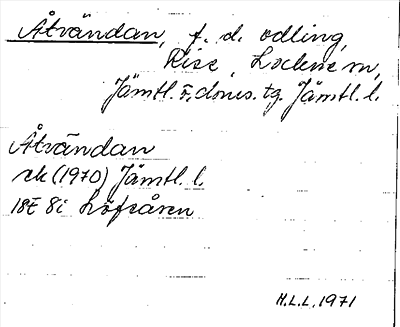 Åtvändan, f. d. odling,
Rise, Lockne sn,
Jämtl. ö. doms. tg. Jämtl. l.
Åtvändan
ek (1970) Jämtl. l.
18E 8i Löfsåsen
H.L.L. 1971